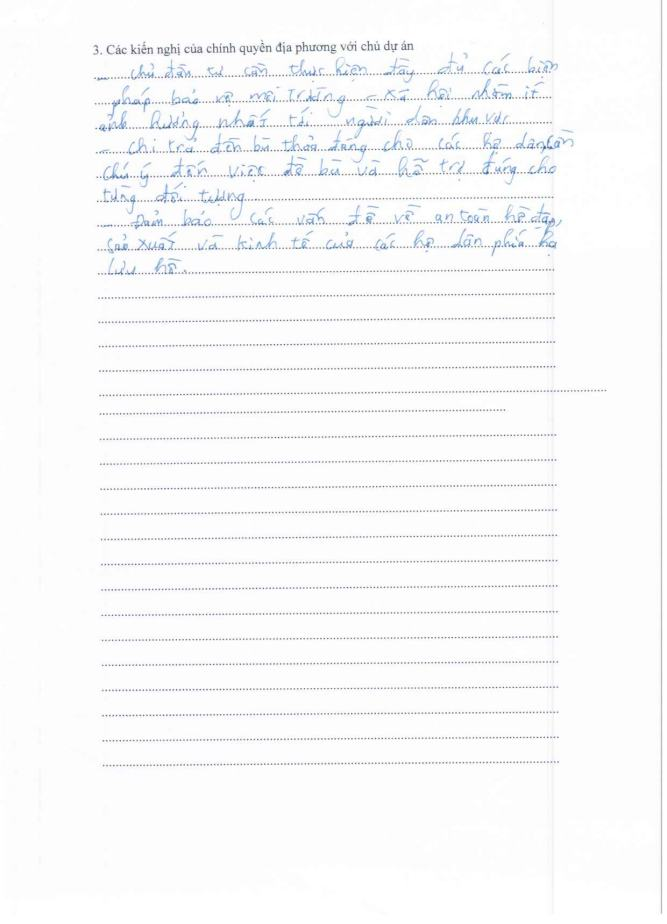 3. Các kiến nghị của chính quyền địa phương với chủ dự án
- Chủ đầu tư cần thực hiện đầy đủ các biện
pháp bảo vệ môi trường - xã hội nhằm ít
ảnh hưởng nhất tới người dân khu vực
- Chi trả đền bù thỏa đáng cho các hộ dân, cần
chú ý đến việc đề bù và hỗ trợ đúng cho
từng đối tượng
- Đảm bảo các vấn đề về an toàn hồ đập,
sản xuất và kinh tế của các hộ dân phía hạ
lưu hồ.